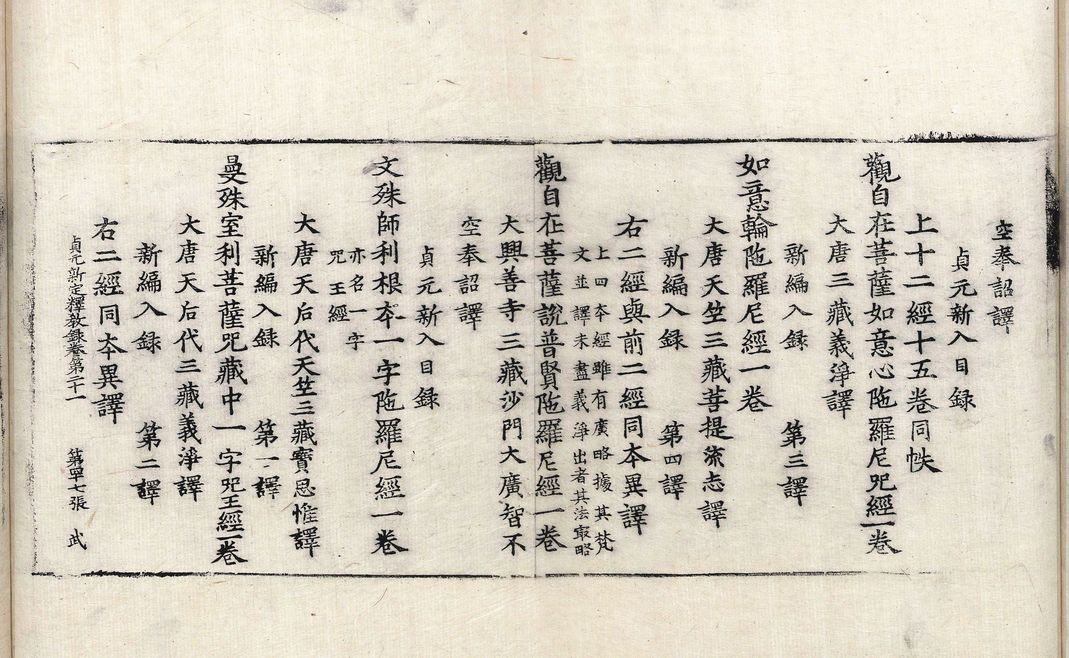 空奉詔譯
貞元新入目録
上十二經十五卷同帙
觀自在菩薩如意心陁羅尼呪經一卷
大唐三藏義淨譯
新編入録 第三譯
如意輪陁羅尼經一卷
大唐天竺三藏菩提流志譯
新編入録 第四譯
右二經與前二經同本異譯
上四本經雖有廣略據其梵
文並譯未盡義淨出者其法最略
觀自在菩薩說普賢陁羅尼經一卷
大興善寺三藏沙門大廣智不
空奉詔譯
貞元新入目録
文殊師利根本一字陁羅尼經一卷
亦名一字
呪王經
大唐天后代天竺三藏寶思惟譯
新編入録 第一譯
曼殊室利菩薩呪藏中一字呪王經一卷
大唐天后代三藏義淨譯
新編入録 第二譯
右二經同本異譯
貞元新定釋教録卷第二十一 第四十七張 武